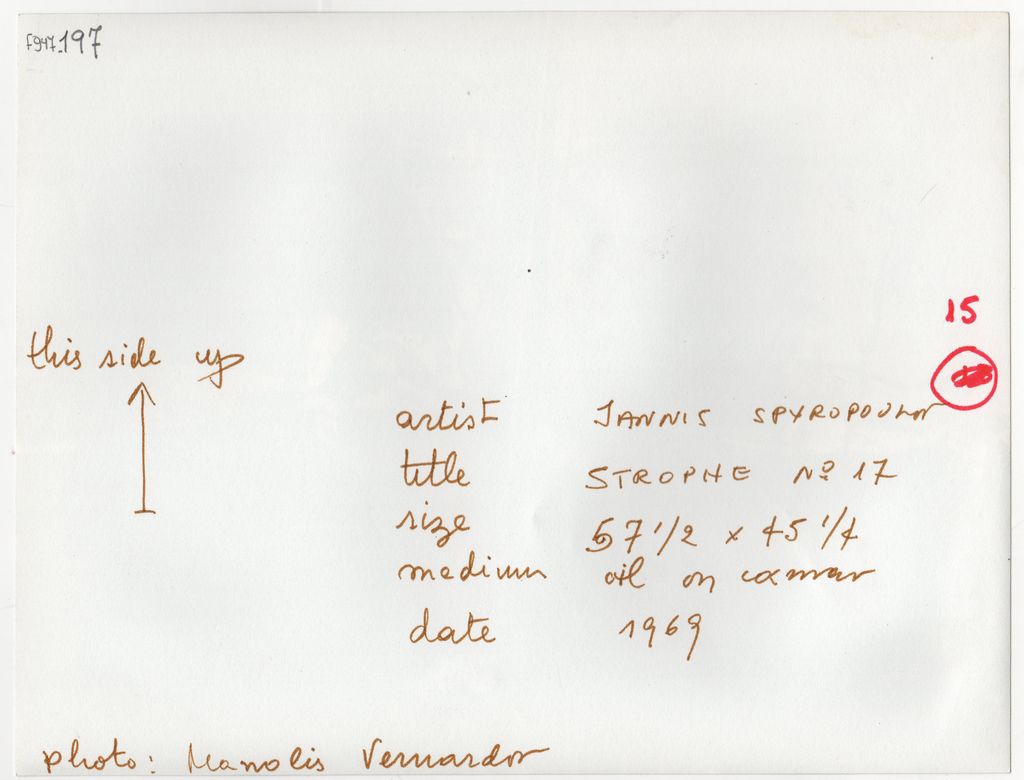 F947_197
15
this side up
artist JANNIS SPYROPOULOS
title STROPHE Nº 17
size 57 1/2 x 45 1/4
medium oil on canvas
date 1969
photo: Manolis Vernardos